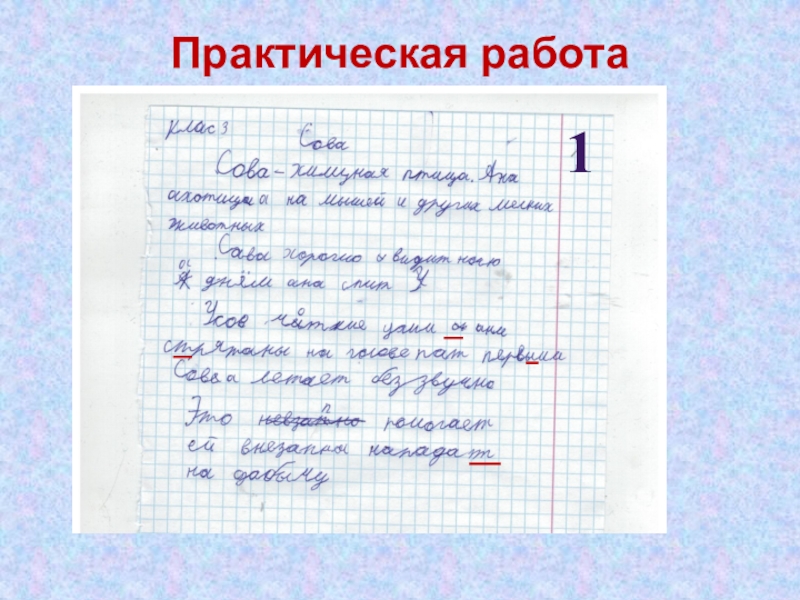 Практическая работа
1
клас 3
Сова
Сова - хищная птица. Ана
ахотица на мышей и других мелких
животных
Сава хорошо видит ночю
а днём ана спит
Усов чуткие уши он они
стрятаны на голове пат первыми
Сова летает беззвучно
п
Это невзапно помогает
ей внезапны нападат
на дабычу